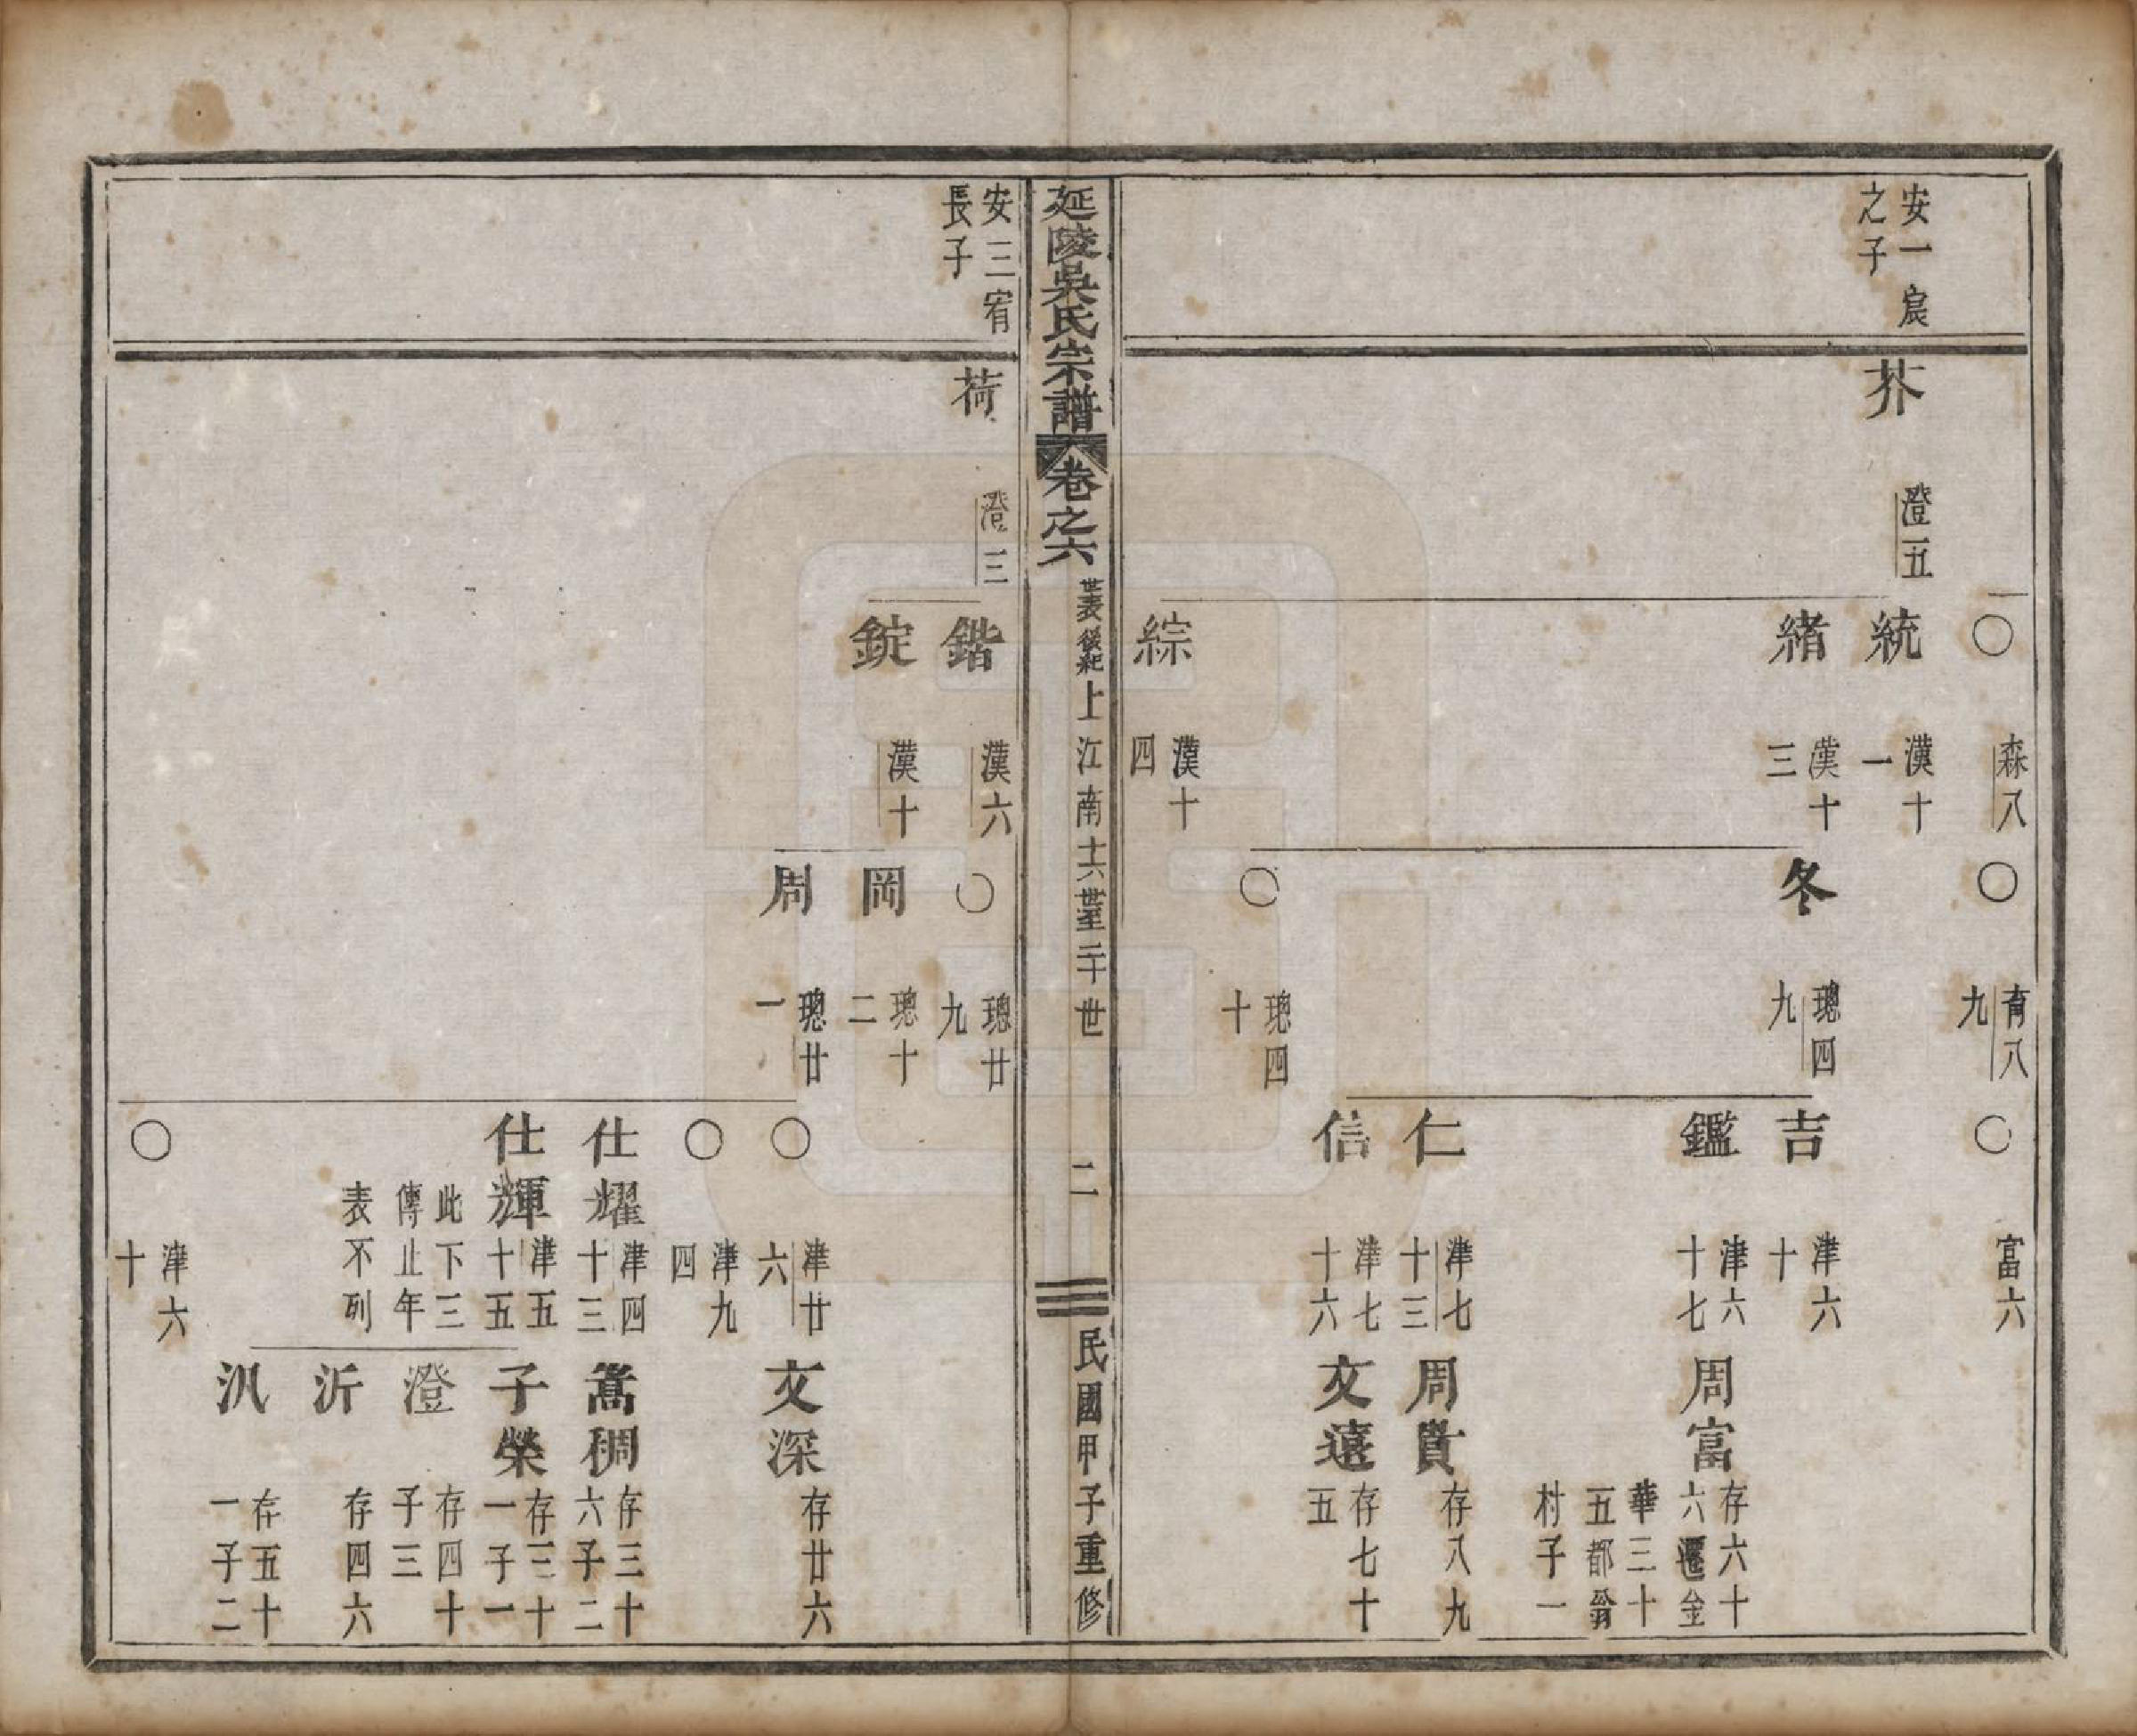 安一宸
之子
芥
澄五
〇
森八
統
漢十
一
緒
漢十
三
綜
漢十
四
〇
育八
九
冬
璁四
九
〇
璁四
十
〇
富六
吉
津六
十
鑑
津六
十七
仁
津七
十三
信
津七
十六
周富
存六十
六遷金
華三十
五都翁
村子一
周貴
存八九
文遠
存七十
五
延陵吳氏宗譜
卷之六
世表後紀上
江南十六世至二十世
二
民國甲子重修
安三宥
長子
荷
澄三
鍇
漢六
錠
漢十
〇
璁廿
九
岡
璁十
二
周
璁廿
一
〇
津廿
六
〇
津九
四
仕耀
津四
十三
仕輝
津五
十五
此下三
傳止年
表不列
〇
津六
十
文深
存廿六
嵩稠
存三十
六子二
子榮
存三十
一子一
澄
存四十
子三
沂
存四六
汎
存五十
一子二